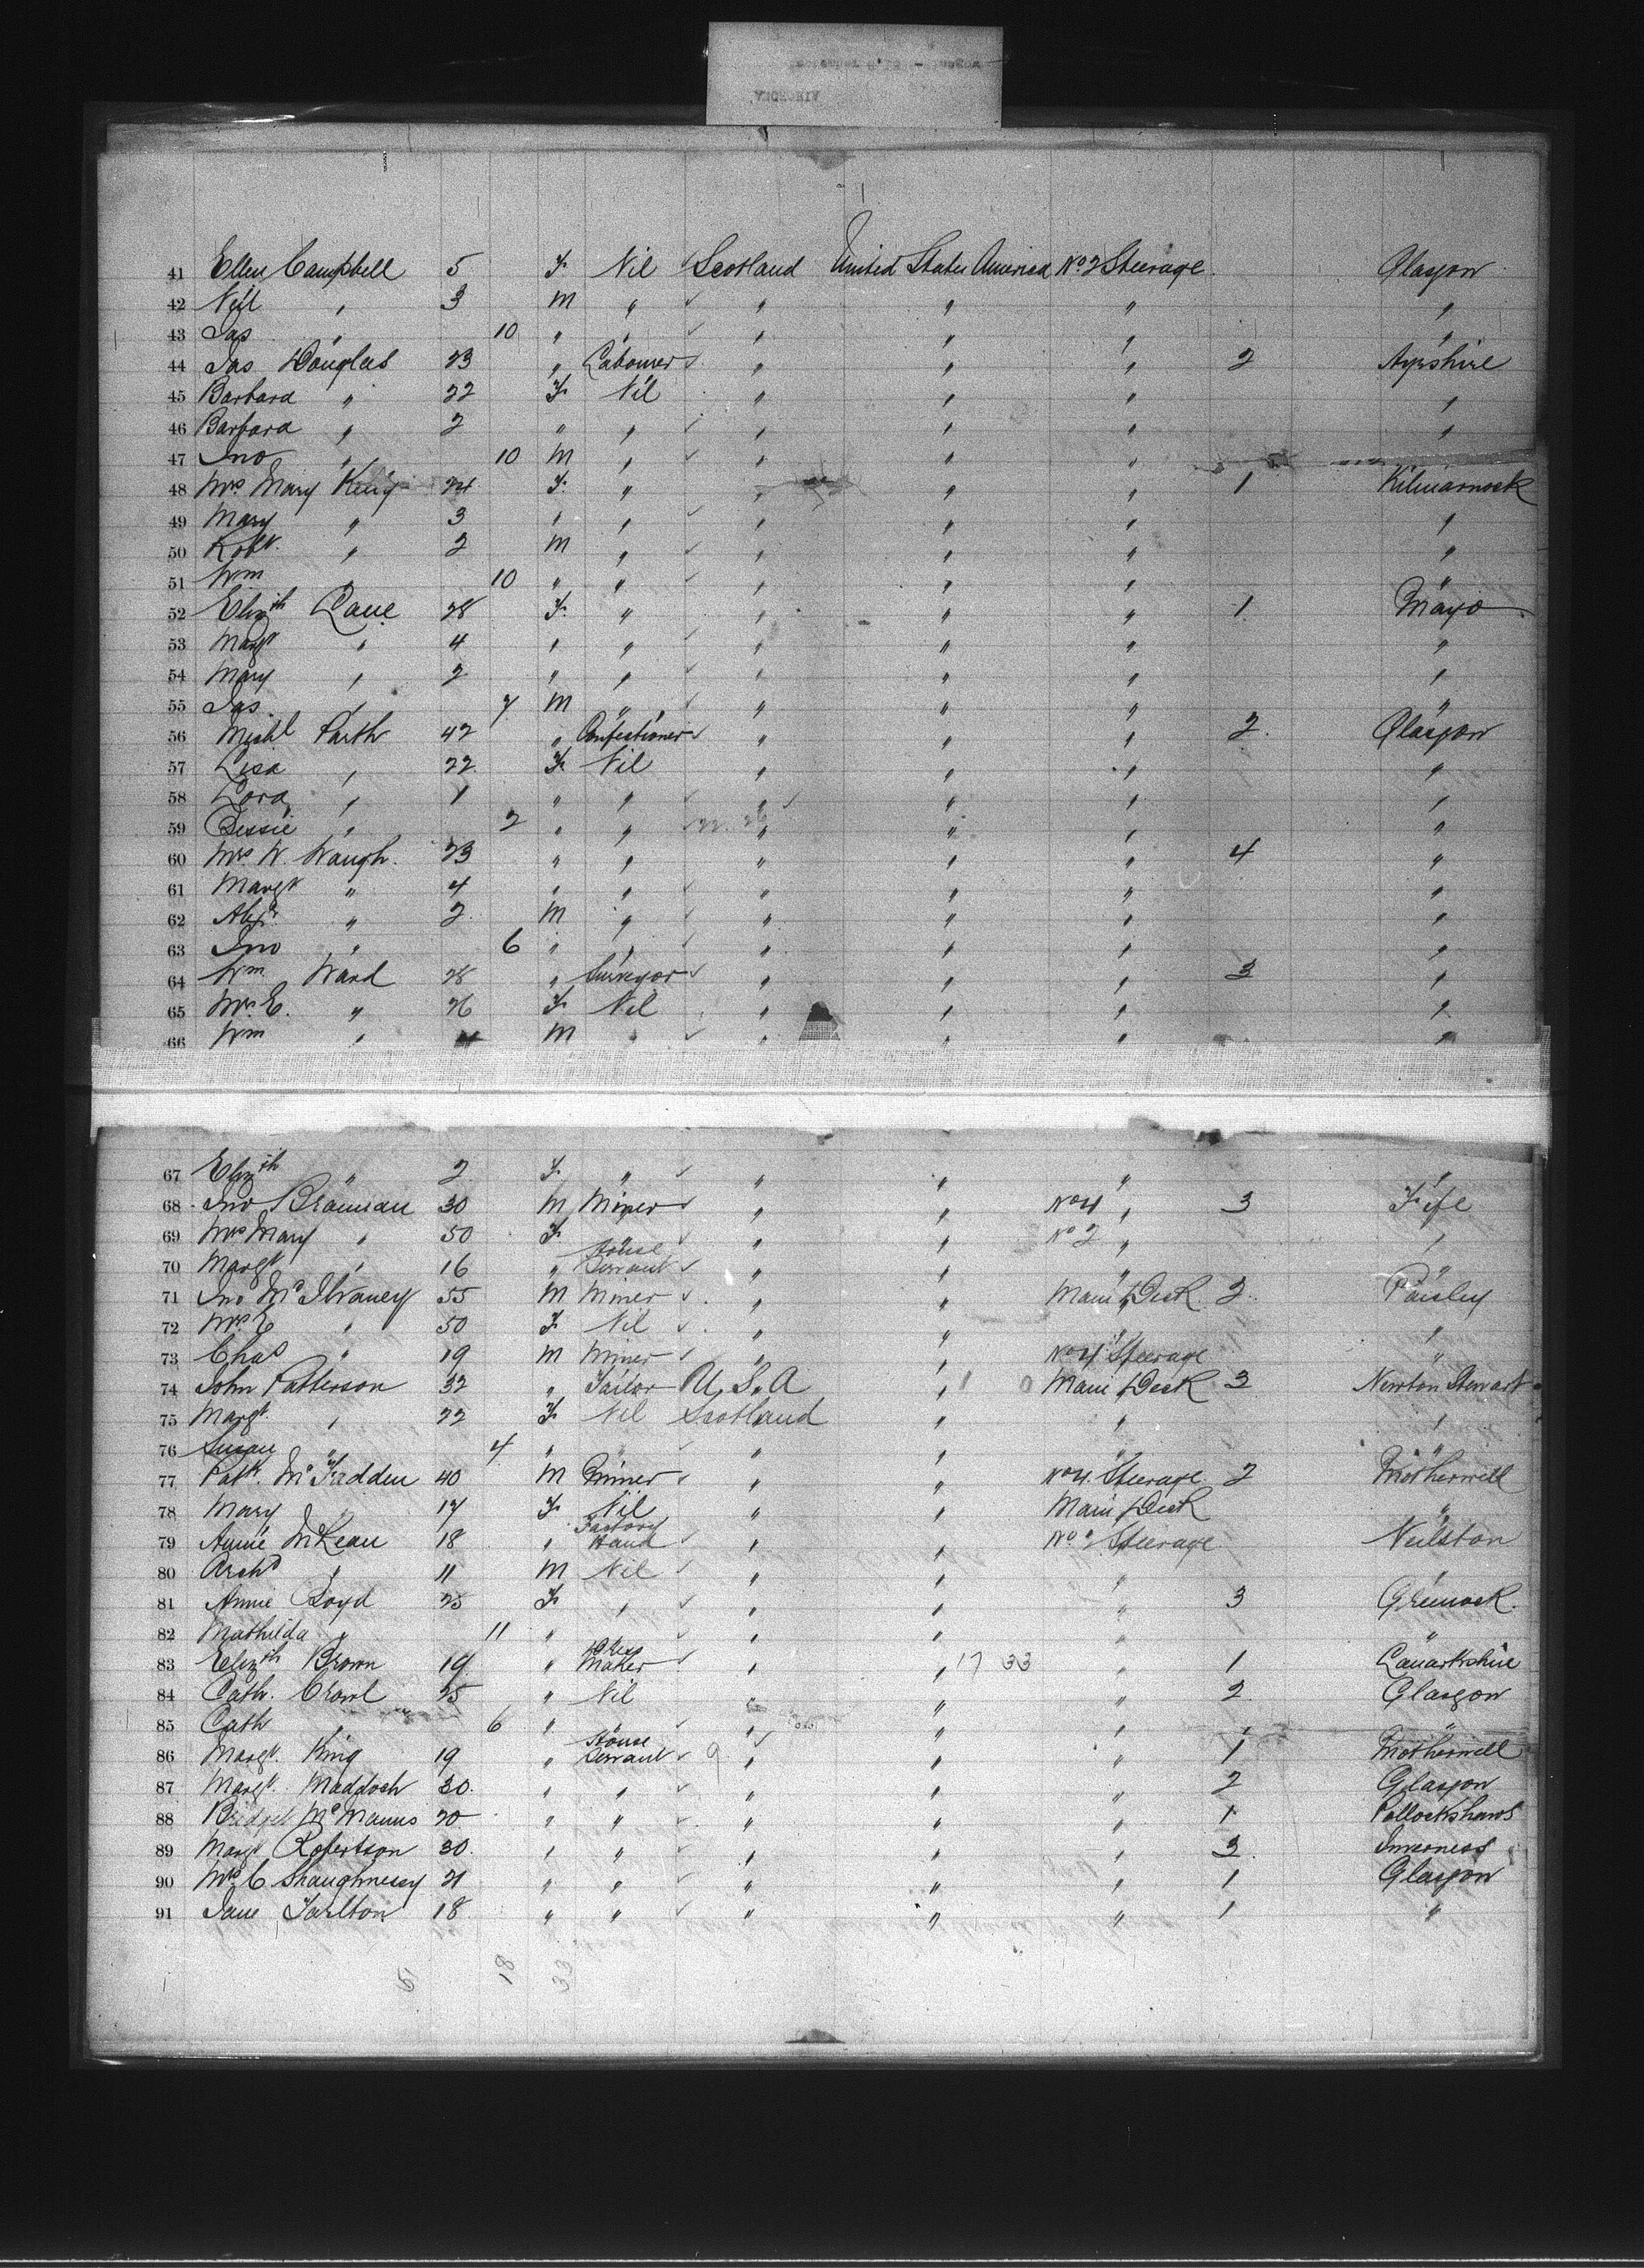 41 Ellen Campbell 5 F Nil Scotland United States America No 2 Steerage Glasgow
42 Neil " 3 M " " " " "
43 Jas " 10 " " " " " "
44 Jas Douglas 23 " Labourer " " " 2 Ayrshire
45 Barbara " 22 F Nil " " " "
46 Barbara " 2 " " " " " "
47 Jno " 10 M " " " "
48 Mrs Mary 24 F " " " " 1 Kilmarnock
49 Mary " 3 " " " " " "
50 Robt. " 2 M " " " " "
51 Wm " 10 " " " " " "
52 Elizth Lane 28 F " " " " 1 Mayo
53 Margt " 4 " " " " " "
54 Mary " 2 " " " " " "
55 Jas. " 7 M " " " " "
56 Michl 42 " Confectioner " " " 2 Glasgow
57 Lisa " 22 F Nil " " " "
58 Lora " 1 " " " " " "
59 Bessie " 2 " " " " " "
60 Mrs W. Waugh. 23 " " " " " 4 "
61 Margt " 4 " " " " " "
62 Alexr " 2 M " " " " "
63 Jno " 6 " " " " " "
64 Wm Ward 28 " Surveyor " " " 3 "
65 Mrs E. " 26 F Nil " " " "
66 Wm " 4 M " " " " "
67 Elizth " 2 F " " " " "
68 Jno 30 M Miner " " No 4 " 3 Fife
69 Mrs Mary " 50 F " " No 2 " "
70 Margt " 16 " House Servant " " " "
71 Jno McIlvaney 55 M Miner " " Main Deck 2 Paisley
72 Mrs E " 50 F Nil " " " "
73 Chas " 19 M Miner " " No 4 Steerage "
74 John Patterson 32 " Tailor U.S.A " Main Deck 3 Newton Stewart
75 Margt. " 22 F Nil Scotland " " "
76 Susan " 4 " " " " " "
77 Patk. McFadden 40 M Miner " " No 4. Steerage 2 Motherwell
78 Mary " 17 F Nil " " Main Deck "
79 Annie McLean 18 " Factory Hand " " No 2 Steerage Neilston
80 Archd " 11 M Nil " " " "
81 Annie Boyd 25 F " " " " 3 Greenock
82 Mathilda " 11 " " " " " "
83 Elizth Brown 19 " Dress Maker " " 17 33 " 1 Lanarkshire
84 Cath. 25 " Nil " " " 2 Glasgow
85 Cath " 6 " " " " " "
86 Margt. King 19 " House Servant 9 " " " 1 Motherwell
87 Margt. Maddoch 30 " " " " " 2 Glasgow
88 Bridget McManus 20 " " " " " 1 Pollockshaws
89 Margt Robertson 30 " " " " " 3 Inverness
90 Mrs C Shaughnessy 21 " " " " " 1 Glasgow
91 Jane Tarlton 18 " " " " " 1 "
18 33